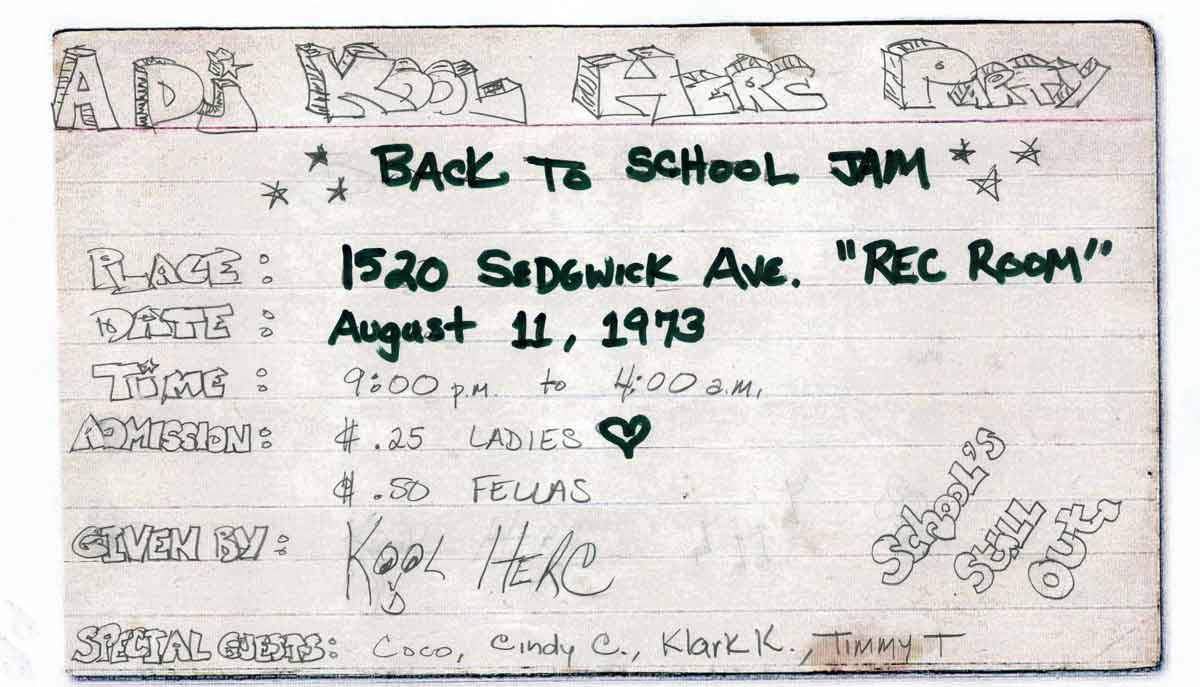 A DJ KOOL HERC PARTY
BACK TO SCHOOL JAM
PLACE: 1520 SEDGWICK AVE. "REC ROOM"
DATE: August 11, 1973
TIME: 9:00 p.m. to 4:00 a.m.
ADMISSION: $.25 LADIES ♥
$.50 FELLAS
GIVEN BY: KOOL HERC
SCHOOL'S
STILL
OUT,
SPECIAL GUESTS: Coco, Cindy C., Klark K., Timmy T